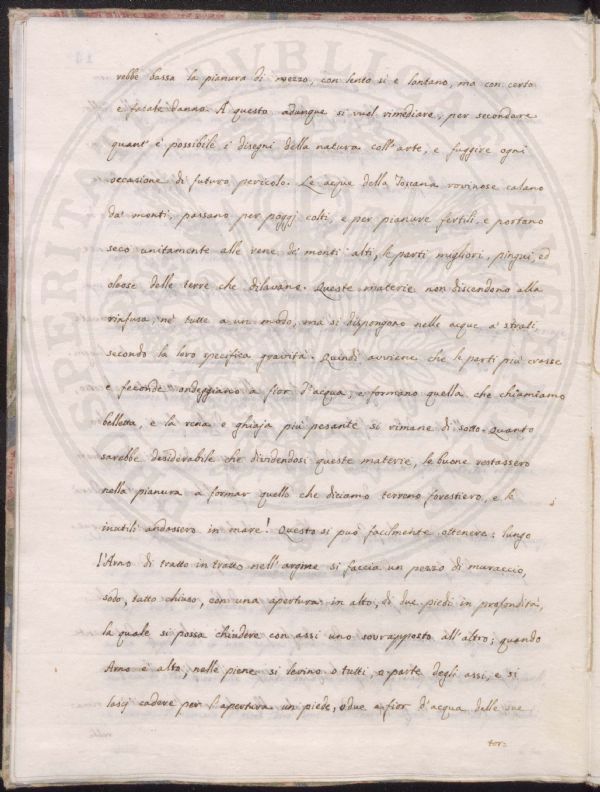 rebbe bassa la pianura di mezzo, con lento si e lontano, ma con certo
e fatale danno. A questo adunque si vuol rimediare, per secondare
quant' è possibile i disegni della natura coll' arte, e fuggire ogni
occasione di futuro pericolo. Le acque della Toscana rovinose calano
da' monti, passano per poggj colti, e per pianure fertili, e portano
seco unitamente alle rene de' monti alti, le parti migliori, pingui, ed
oleose delle terre che dilavano. Queste materie non discendono alla
rinfusa, nè tutte a un modo, ma si dispongono nelle acque a strati,
secondo la loro specifica gravità. Quindi avviene che le parti più crasse
e feconde ondeggiano a fior d'acqua, e formano quella che chiamiamo
belletta, e la rena e ghiaja più pesante si rimane di sotto. Quanto
sarebbe desiderabile che dividendosi queste materie, le buone restassero
nella pianura a formar quello che diciamo terreno forestiero, e le
inutili andassero in mare! Questo si può facilmente ottenere; lungo
l'Arno di tratto in tratto nell' argine si faccia un pezzo di muraccio,
sodo, tutto chiuso, con una apertura in alto, di due piedi in profondità,
la quale si possa chiudere con assi uno sovrapposto all' altro; quando
Arno è alto, nelle piene si levino o tutti, o parte degli assi, e si
lascj cadere per l'apertura un piede, o due a fior d'acqua delle sue
tor=
PROSPERITATI PVBLICAE